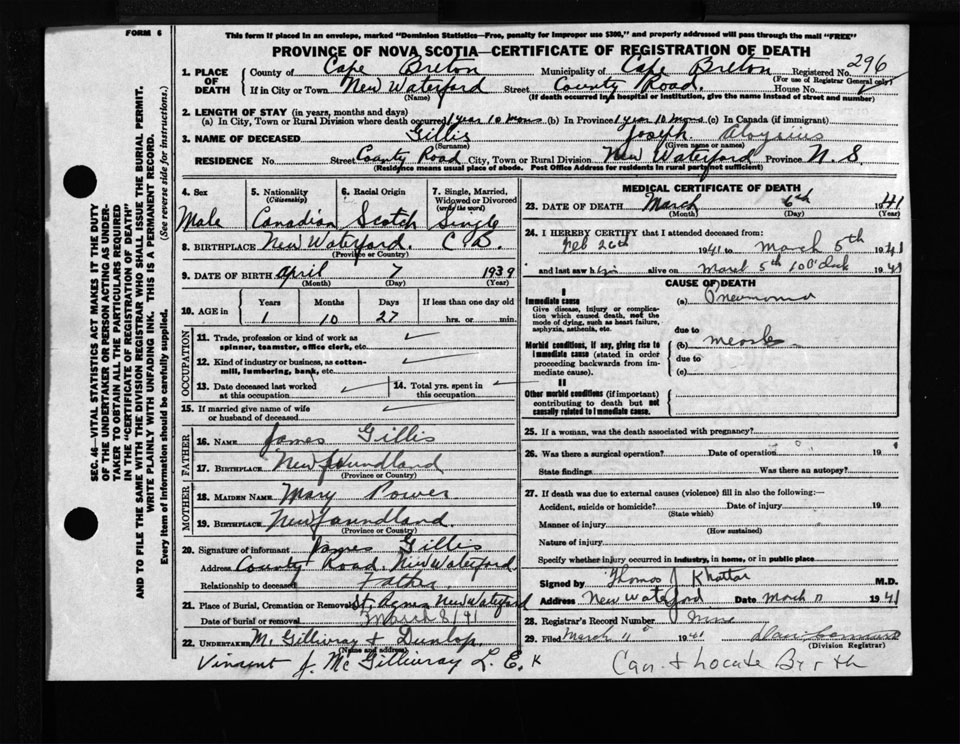 FORM 6
This form if placed in an envelope, marked "Dominion Statistics—Free, penalty for improper use $300," and properly addressed will pass through the mail "FREE"
PROVINCE OF NOVA SCOTIA—CERTIFICATE OF REGISTRATION OF DEATH
1. PLACE OF DEATH
County of Cape Breton Municipality of Cape Breton Registered No. 296
(For use of Registrar General only)
If in City or Town New Waterford Street County Road. House No.
(Name) (If death occurred in a hospital or institution, give the name instead of street and number)
2. LENGTH OF STAY (in years, months and days)
(a) In City, Town or Rural Division where death occurred 1 year 10 mons (b) In Province 1 year 10 mons (c) In Canada (if immigrant)
3. NAME OF DECEASED Gillis Joseph Aloysius
(Surname) (Given name or names)
RESIDENCE No. Street County Road City, Town or Rural Division New Waterford Province N. S
(Residence means usual place of abode. Post Office Address for residents in rural parts not sufficient)
4. Sex
Male
5. Nationality
(Citizenship)
Canadian
6. Racial Origin
Scotch
7. Single, Married, Widowed or Divorced
(write the word)
Single
8. BIRTHPLACE New Waterford. C.B.
(Province or Country)
9. DATE OF BIRTH April 7 1939
(Month) (Day) (Year)
10. AGE in
Years Months Days If less than one day old
1 10 27 hrs. or min.
OCCUPATION
11. Trade, profession or kind of work as spinner, teamster, office clerk, etc.
12. Kind of industry or business, as cotton-mill, lumbering, bank, etc.
13. Date deceased last worked at this occupation
14. Total yrs. spent in this occupation
15. If married give name of wife or husband of deceased
FATHER
16. NAME James Gillis
17. BIRTHPLACE Newfoundland
(Province or Country)
MOTHER
18. MAIDEN NAME Mary Power
19. BIRTHPLACE Newfoundland.
(Province or Country)
20. Signature of informant James Gillis
Address County Road, New Waterford
Relationship to deceased Father
21. Place of Burial, Cremation or Removal St. Agnes New Waterford
Date of burial or removal March 8/41
22. UNDERTAKER Mc Gillivray & Dunlop.
(Name and address)
Vincent J. Mc Gillivray L. E.
MEDICAL CERTIFICATE OF DEATH
23. DATE OF DEATH March 6th 1941
(Month) (Day) (Year)
24. I HEREBY CERTIFY that I attended deceased from:
Feb 26th 1941 to March 5th 1941
and last saw him alive on March 5th 1941
CAUSE OF DEATH
I
Immediate cause
Give disease, injury or complication which caused death, not the mode of dying, such as heart failure, asphyxia, asthenia, etc.
(a) Pneumonia
due to
Morbid conditions, if any, giving rise to immediate cause (stated in order proceeding backwards from immediate cause).
(b) measles
due to
(c)
II
Other morbid conditions (if important) contributing to death but not causally related to immediate cause.
25. If a woman, was the death associated with pregnancy?
26. Was there a surgical operation? Date of operation 19
State findings Was there an autopsy?
27. If death was due to external causes (violence) fill in also the following:—
Accident, suicide or homicide? Date of injury 19
(State which)
Manner of injury
(How sustained)
Nature of injury
Specify whether injury occurred in industry, in home, or in public place
Signed by Thomas J Khattar M.D.
Address New Waterford Date March 1941
28. Registrar's Record Number
29. Filed March 11 1941
(Division Registrar)
Can + locate Birth
SEC. 46—VITAL STATISTICS ACT MAKES IT THE DUTY
OF THE UNDERTAKER OR PERSON ACTING AS UNDERTAKER TO OBTAIN ALL THE PARTICULARS REQUIRED
IN THE "CERTIFICATE OF REGISTRATION OF DEATH"
AND TO FILE THE SAME WITH THE DIVISION REGISTRAR WHO SHALL ISSUE THE BURIAL PERMIT.
WRITE PLAINLY WITH UNFADING INK. THIS IS A PERMANENT RECORD.
Every item of information should be carefully supplied. (See reverse side for instructions.)